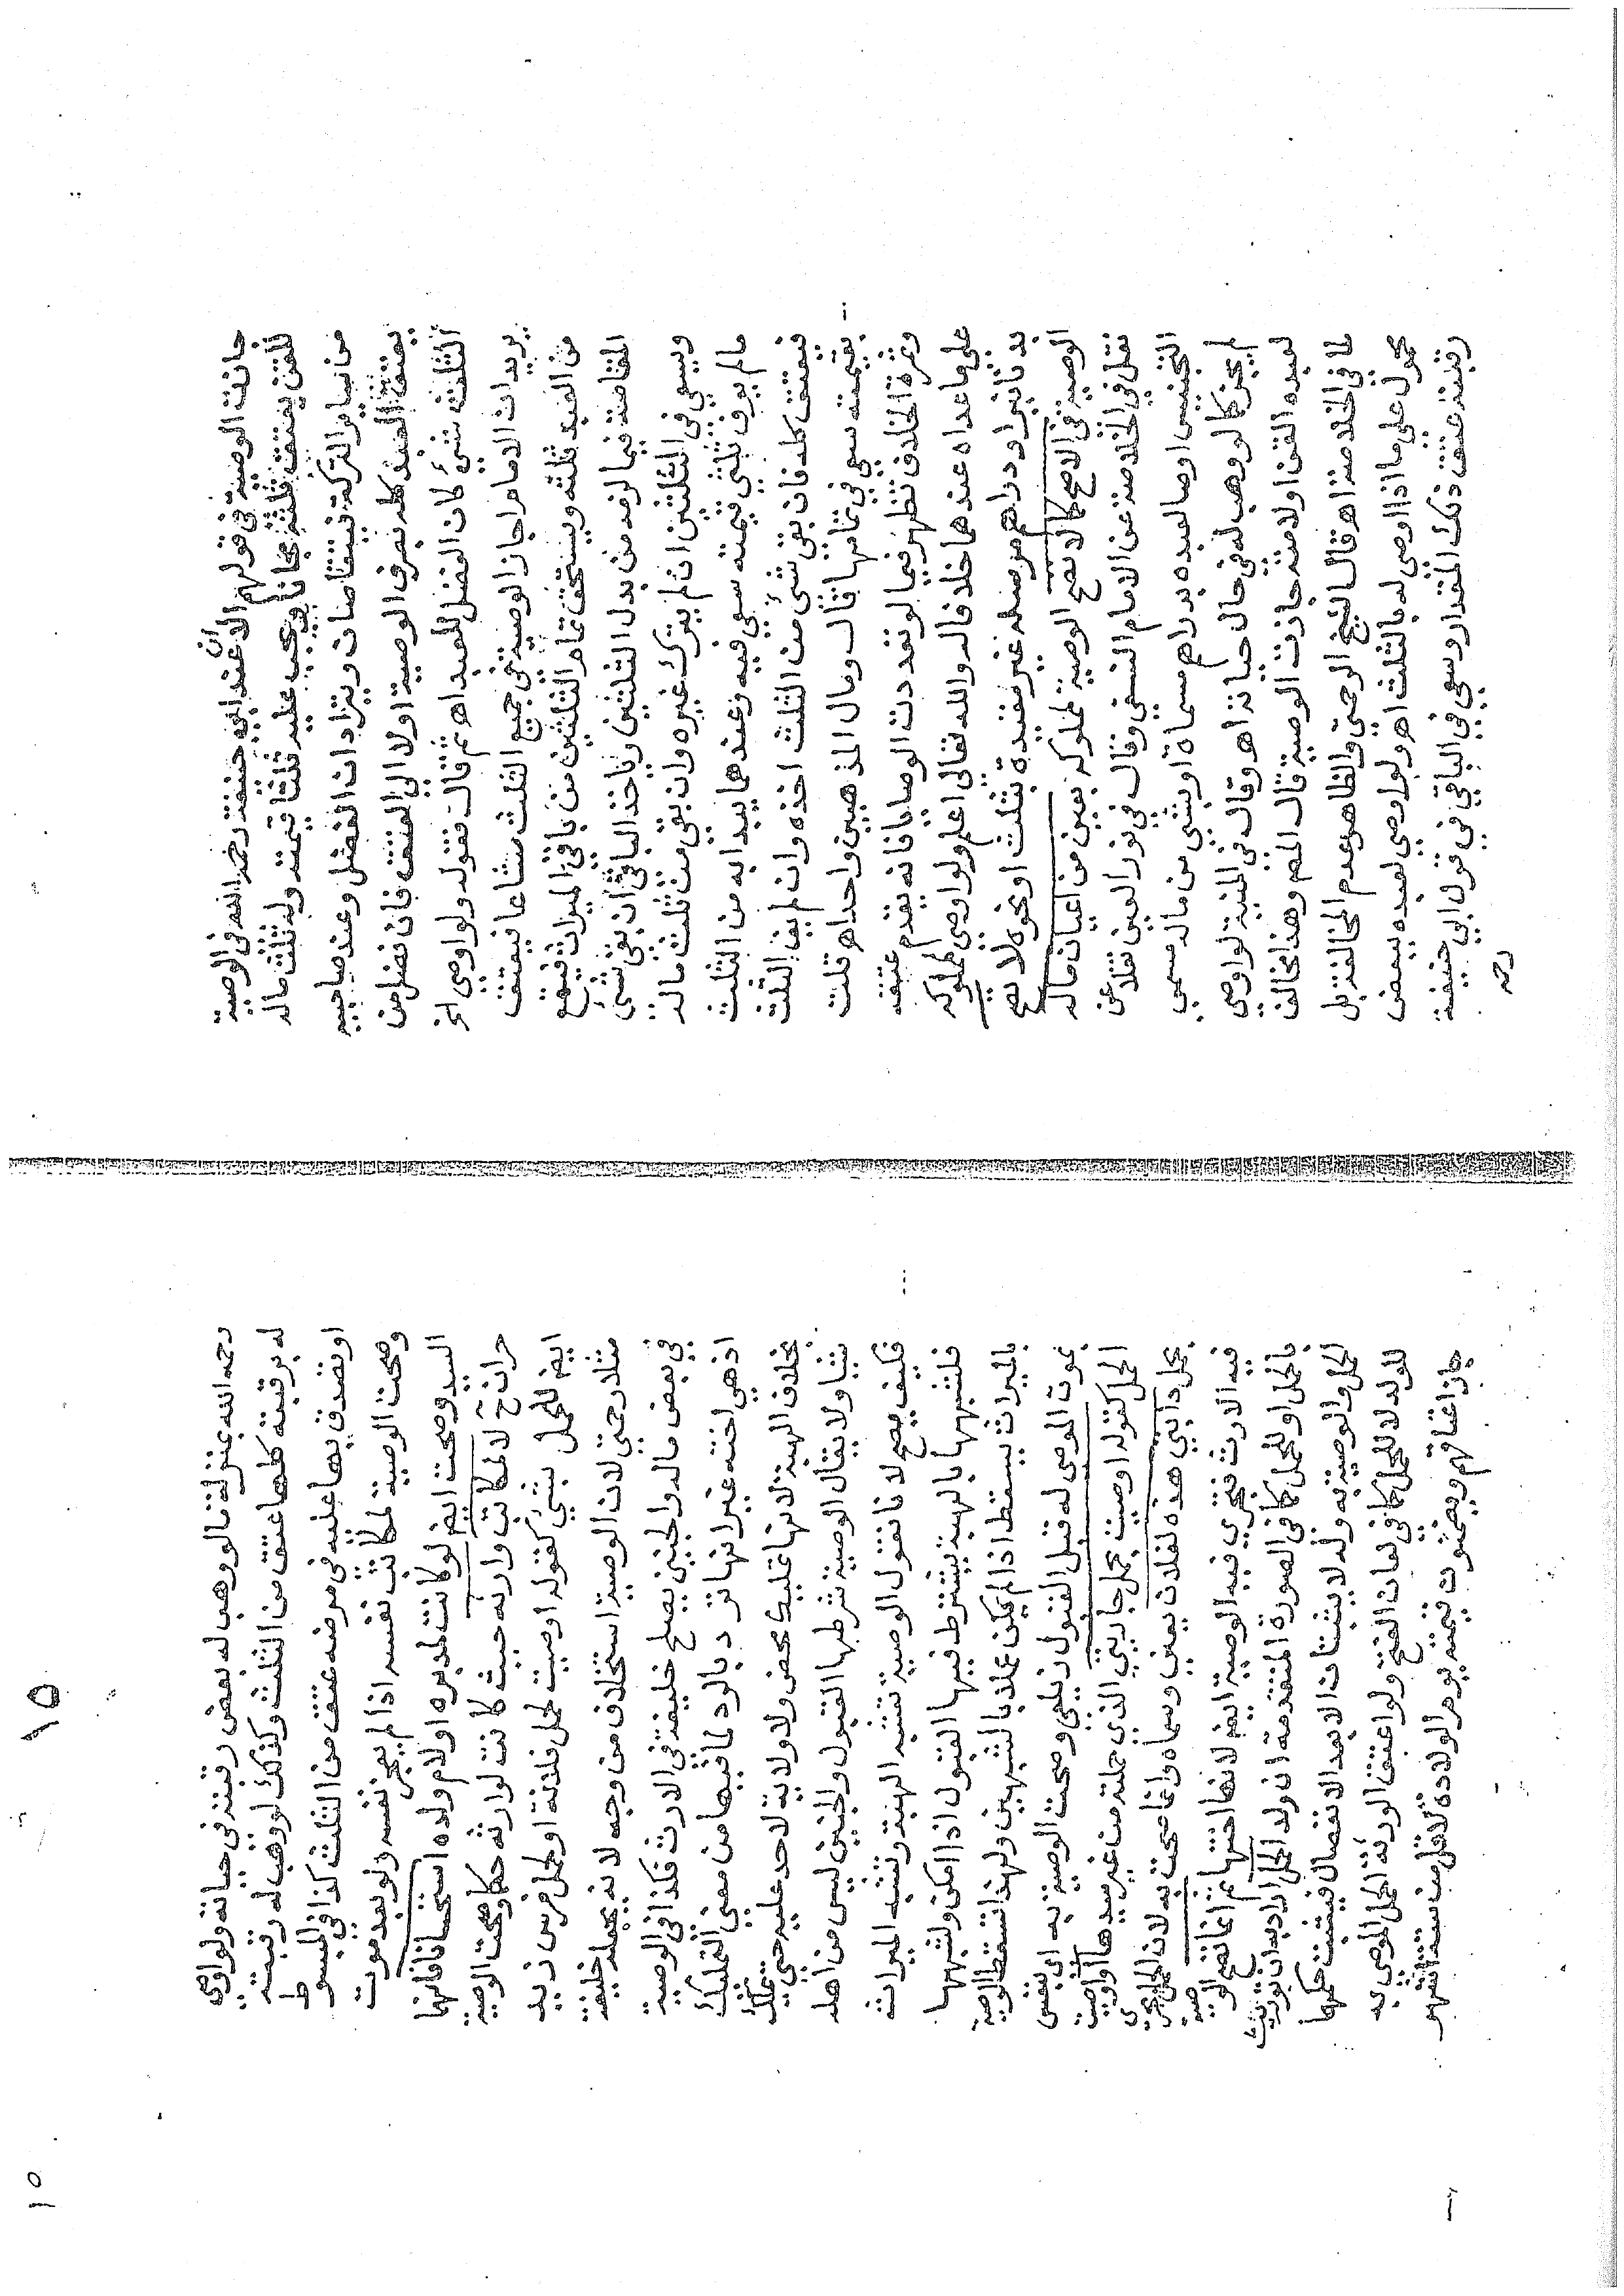 جازت الوصية في قولهم الا ان عند ابي حنيفة رحمه الله في الوصية
للقن يعتق ثلثه مجانا ويجب عليه ثلثا قيمته وله ثلث ماله
من سايرالتركة فيتقاصان ويترادان الفضل وعند صاحبيه
يعتق العبد كله بصرف الوصية اولا الى العتق فان فضل من
الثلث شيئ كان الفضل للعبد اه ثم قال فقوله ولو اوصى الخ
يريد ان الامام اجاز الوصية في جميع الثلث مشاعا فيعتق
من العبد ثلثه ويستحق تمام الثلثين من باقي الميراث فيقع
المقاصة فيما لزمه من بدل الثلثين وياخذ الباقي ان بقي شئ
ويسعى في الثلثين ان لم يترك غيره وان بقي من ثلث ماله
مالم يوف ثلثي قيمته سعى فيه وعندهما يبدا به من الثلث
فيعتق كله فان بقي شئ من الثلث اخذه وان لم يف الثلث
بقيمته سعى في تمامها قال ومال المذهبين واحد اه قلت
وثمرة الخلاف تظهر فيما لو تعددت الوصايا فانه يقدم عتقه
على ما عداه عندهما خلافا له والله تعالى اعلم ولو اوصى لمملوكه
بدنانير او دراهم مرسله غير مقيدة بثلث او نحوه لا تصح
الوصية في الاصح كما لا تصح الوصية لمملوكه بعين من اعيان ماله
نقل في الخلاصة عن الامام النسفي وقال في نور العين نقلا عن
التجنيس اوصا لعبده بدراهم مسماة او بشئ من ماله مسمى
لم يجز كما لو وهب له في حال حياته اه وقال في المنية لو اوصى
لعبده القن او لامته جازت الوصية قال المص وهذا مخالف
لما في الخلاصة اه قال الشيخ الرحمتي والظاهر عدم المخالفة بل
محمول على ما اذا اوصى له بالثلث اه ولو اوصى لعبده ببعض
رقبته عتق ذلك المقدار وسعى في الباقي في قول ابي حنيفة
رحمه
١٥
رحمه الله بمنزلة مالو وهب له بعض رقبته في حياته ولو اوصى
له برقبته كلها عتق من الثلث وكذلك لو وهب له رقبته
او تصدق بها عليه في مرضه عتق من الثلث كذا في المبسوط
وصحت الوصية لمكاتب نفسه اذا لم يعجز نفسه ولو بعد موت
السيد وصحت ايض لو كانت لمدبره او لام ولده استحسانا فانها
حرانح لا لمكاتب وارثه حيث كانت لوارثه حكما وصحت الوصية
ايض للحمل بشئ كقوله اوصيت لحمل فلانة او لحمل فرس زيد
مثلا رحمتي لان الوصية استخلاف من وجه لانه يجعله خليفة
في بعض ماله والجنين يصلح خليفة في الارث فكذا في الوصية
اذ هي اخته غير انها ترد بالرد لما فيها من معنى التمليك
بخلاف الهبة لانها تمليك محض ولا ولاية لاحد عليه حتى يملك
شيئا ولا يقال الوصية شرطها القبول والجنين ليس من اهله
فكيف يصح لانا نقول الوصية تشبه الهبة وتشبه الميراث
فلشبهها بالهبة يشترط فيها القبول اذا امكن ولشبهها
بالميراث يسقط اذا لم يكن عملا بالشبهين ولهذا تسقط الوصية
بموت الموصى له قبل القبول زيلعي وصحت الوصية به اي بنفس
الحمل كقوله اوصيت بحمل جاريتي الذي حملته من غير سيدها او اوصيت
بحمل دابتي هذه لفلان بعين وسماه وانما صحت به لان الحمل يجري
فيه الارث فتجري فيه الوصية ايض لانها اختها ثم انما تصح الوصية
بالحمل او للحمل كما في الصورة المتقدمة ان ولد الحمل اراد به ان توريث
الحمل والوصية به وله لا يثبتان الا بعد الانفصال فيثبت حكمها
للولد لا للحمل كما في نعات الفتح ولو اعتق الورثة الحمل الموصى به
جاز اعتاقهم ويضمنون قيمته يوم الولادة لاقل من ستة اشهر
١٥